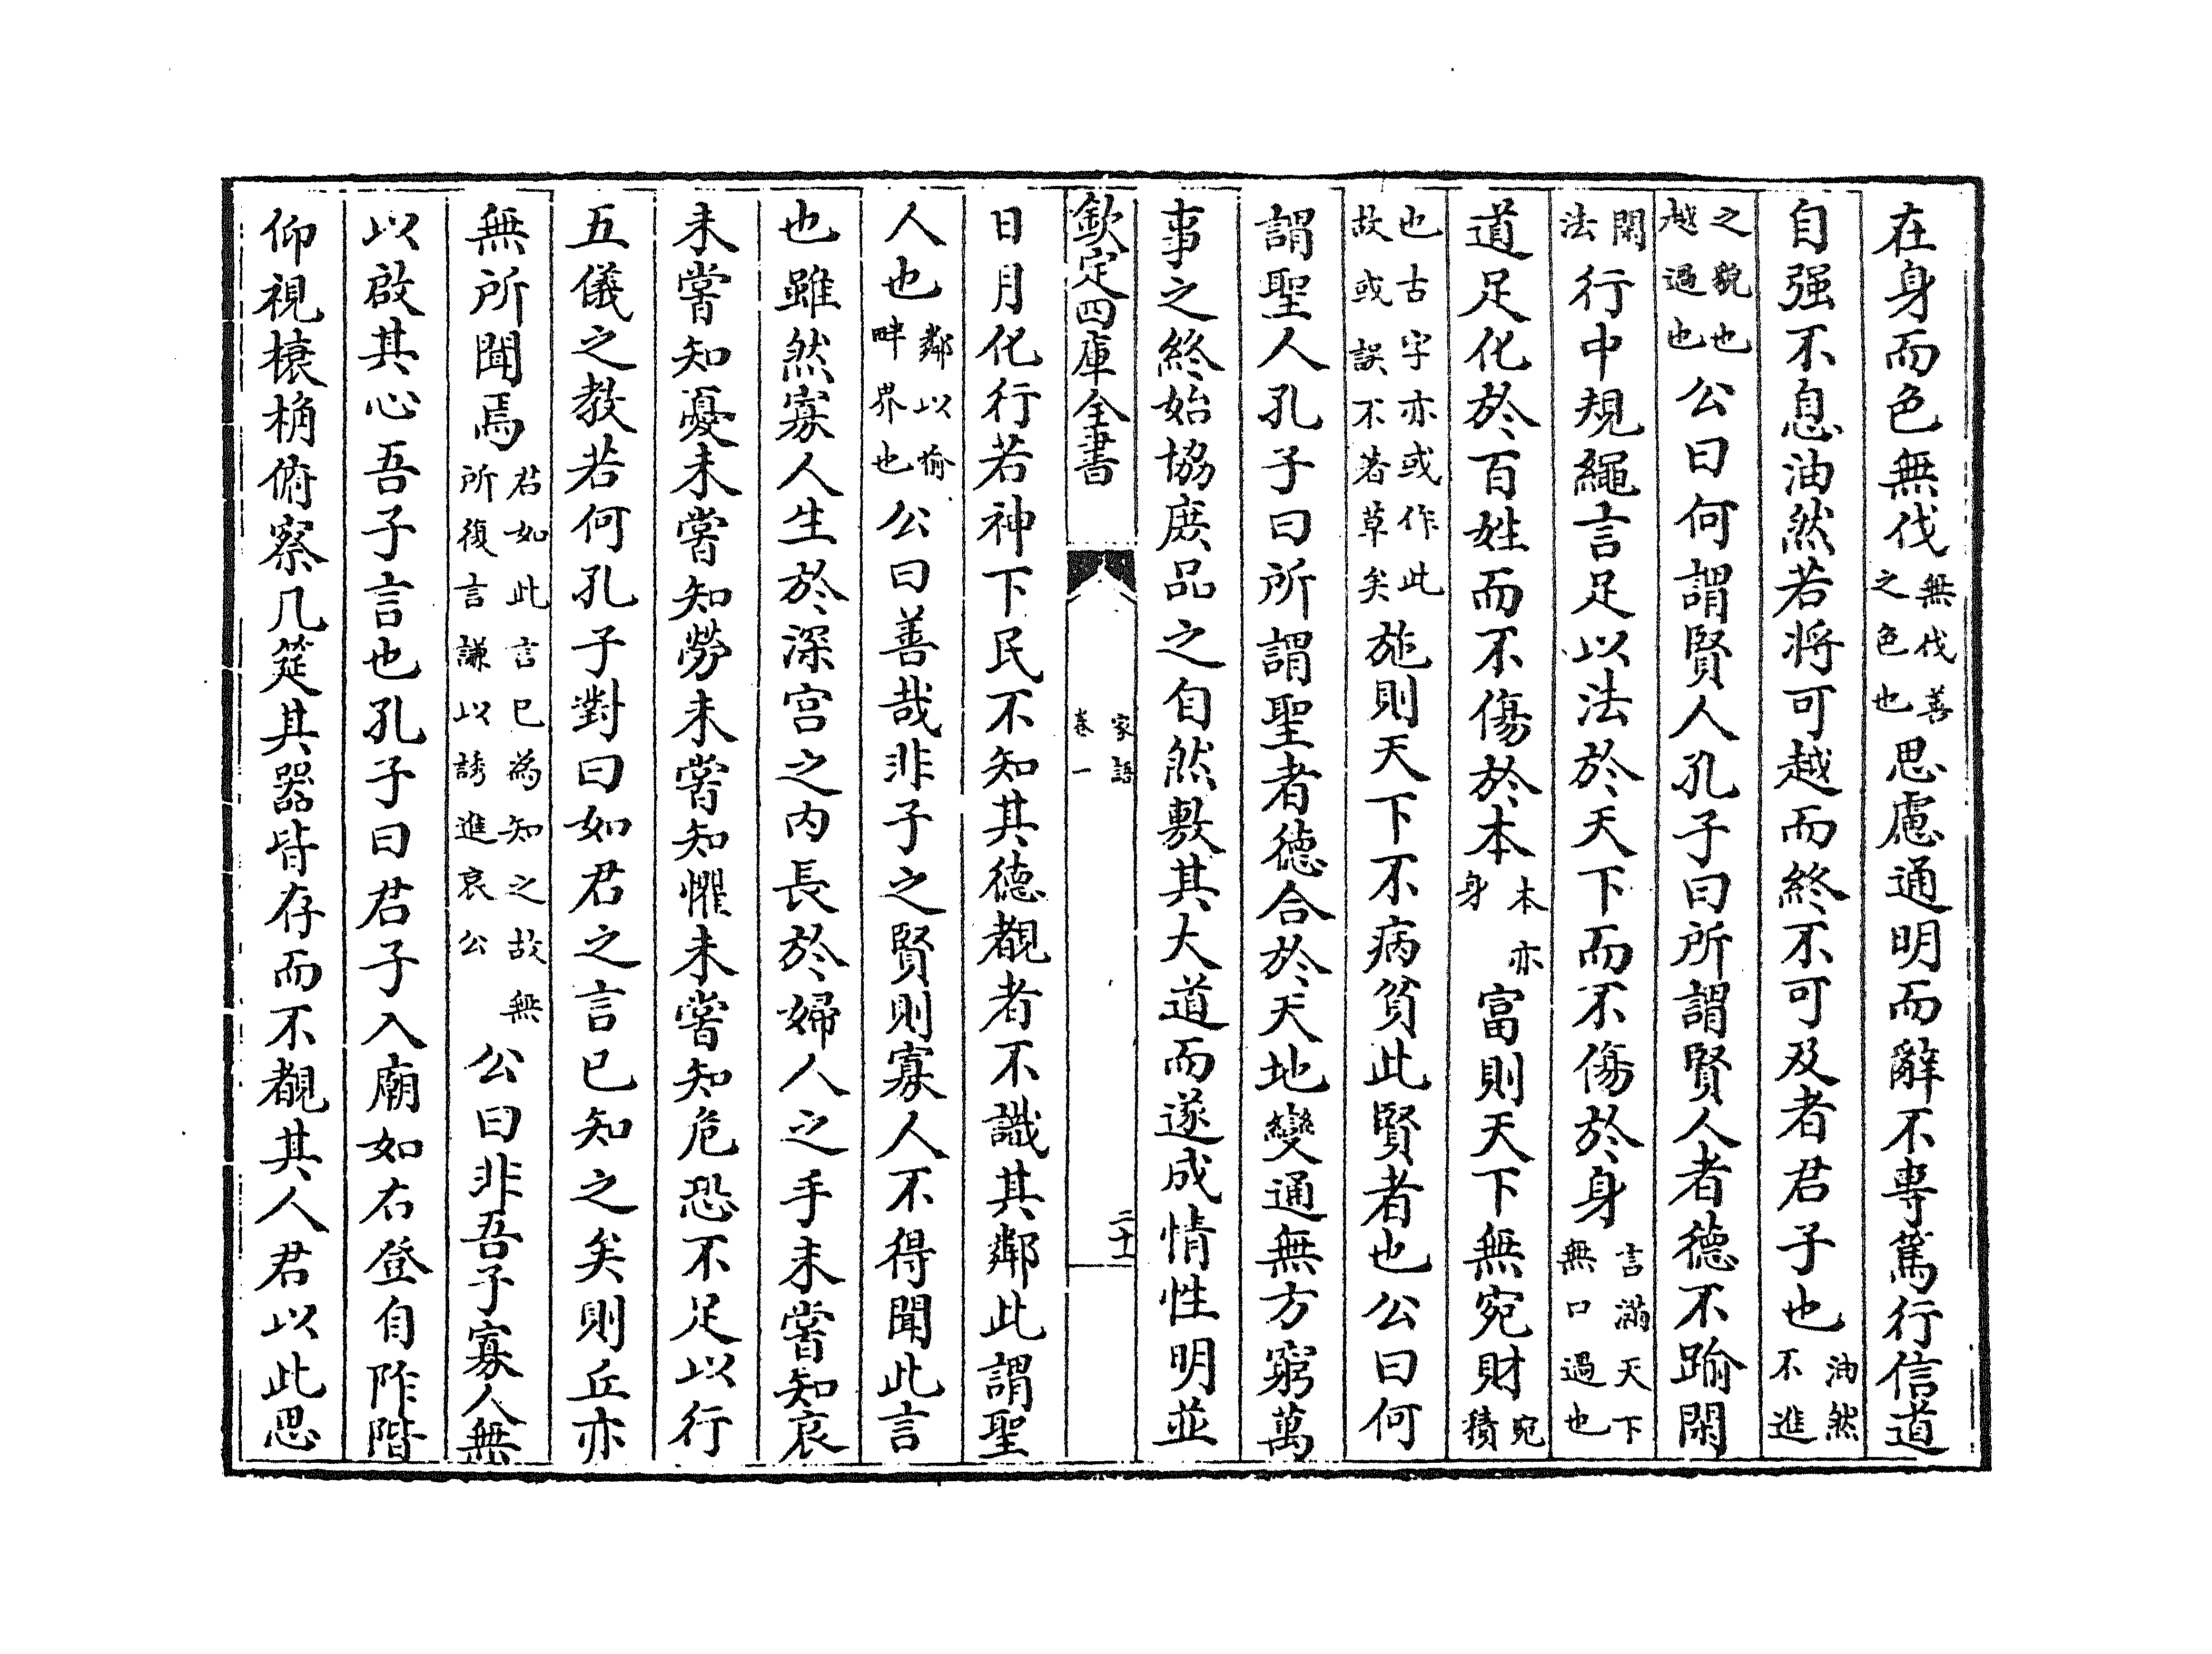 在身而色無伐無伐善之色也思慮通明而辭不專篤行信道
自强不息油然若將可越而終不可及者君子也油然不進
之貌也越過也公曰何謂賢人孔子曰所謂賢人者德不踰閑
閑法行中規繩言足以法於天下而不傷於身言滿天下無口過也
道足化於百姓而不傷於本本亦身富則天下無宛財宛積
也古字亦或作此故或誤不着草矣施則天下不病貧此賢者也公曰何
謂聖人孔子曰所謂聖者德合於天地變通無方窮萬
事之終始協庶品之自然敷其大道而遂成情性明並
欽定四庫全書
家語
卷一
二十一
日月化行若神下民不知其德覩者不識其鄰此謂聖
人也鄰以喻畔界也公曰善哉非子之賢則寡人不得聞此言
也雖然寡人生於深宫之内長於婦人之手未嘗知哀
未嘗知憂未嘗知勞未嘗知懼未嘗知危恐不足以行
五儀之教若何孔子對曰如君之言已知之矣則丘亦
無所聞焉君如此言已為知之故無所復言謙以誘進哀公公曰非吾子寡人無
以啟其心吾子言也孔子曰君子入廟如右登自阼階
仰視榱桷俯察几筵其器皆存而不覩其人君以此思